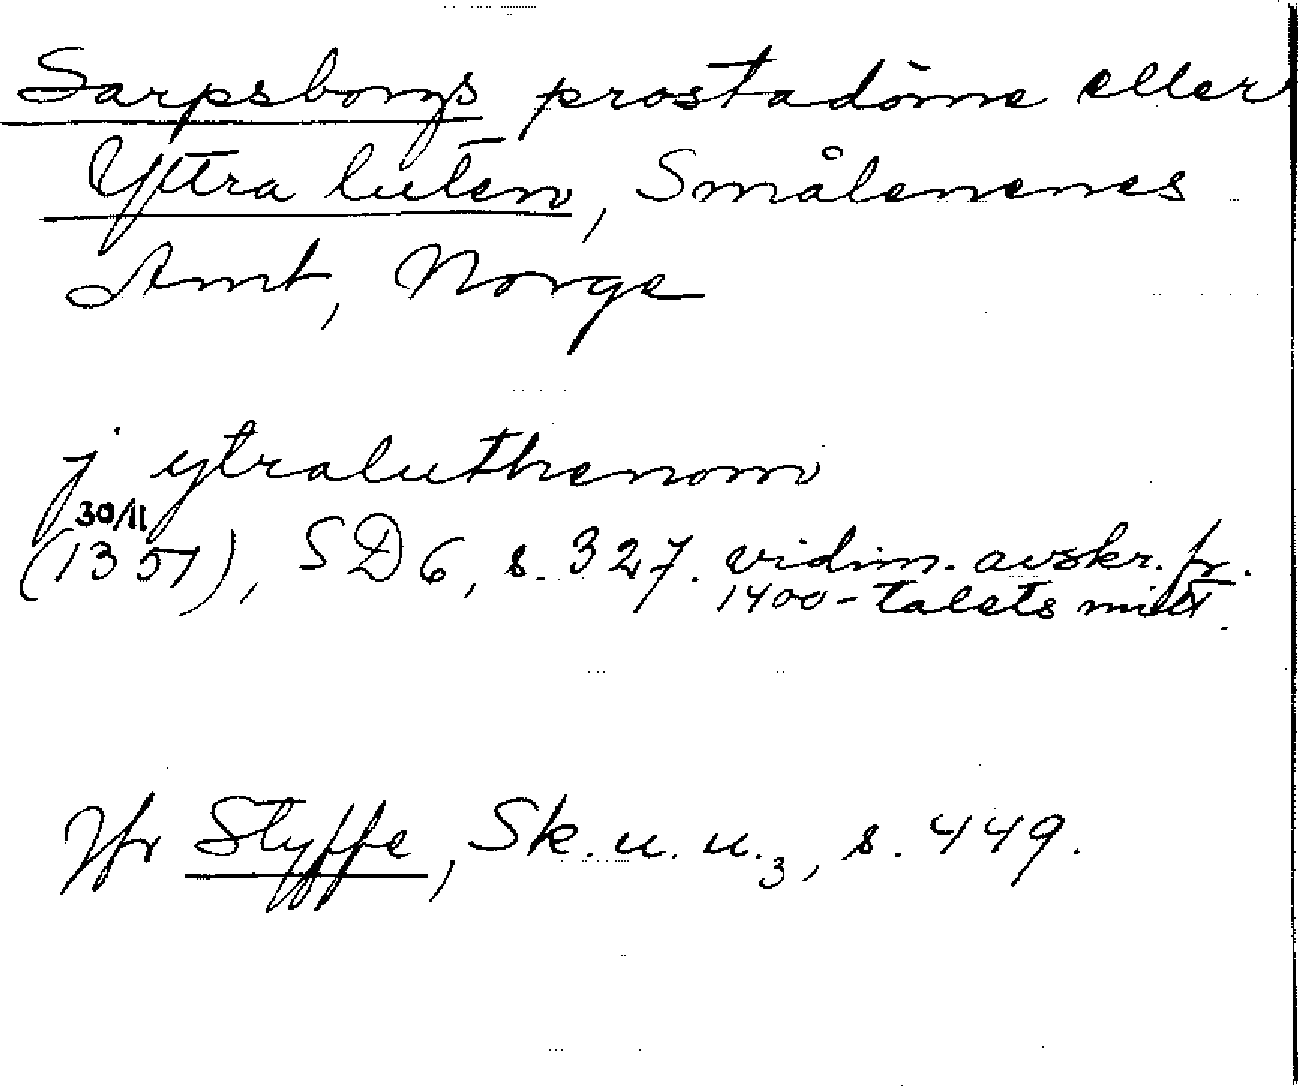 Sarpsborgs prostadöme eller
Yttra luten, Smålenenes
Amt, Norge
j ytraluthenom
30/11
(1351), SD 6, s. 327. vidim. avskr. fr.
1400-talets mitt.
Jfr Styffe, Sk. u. u.3, s. 449.